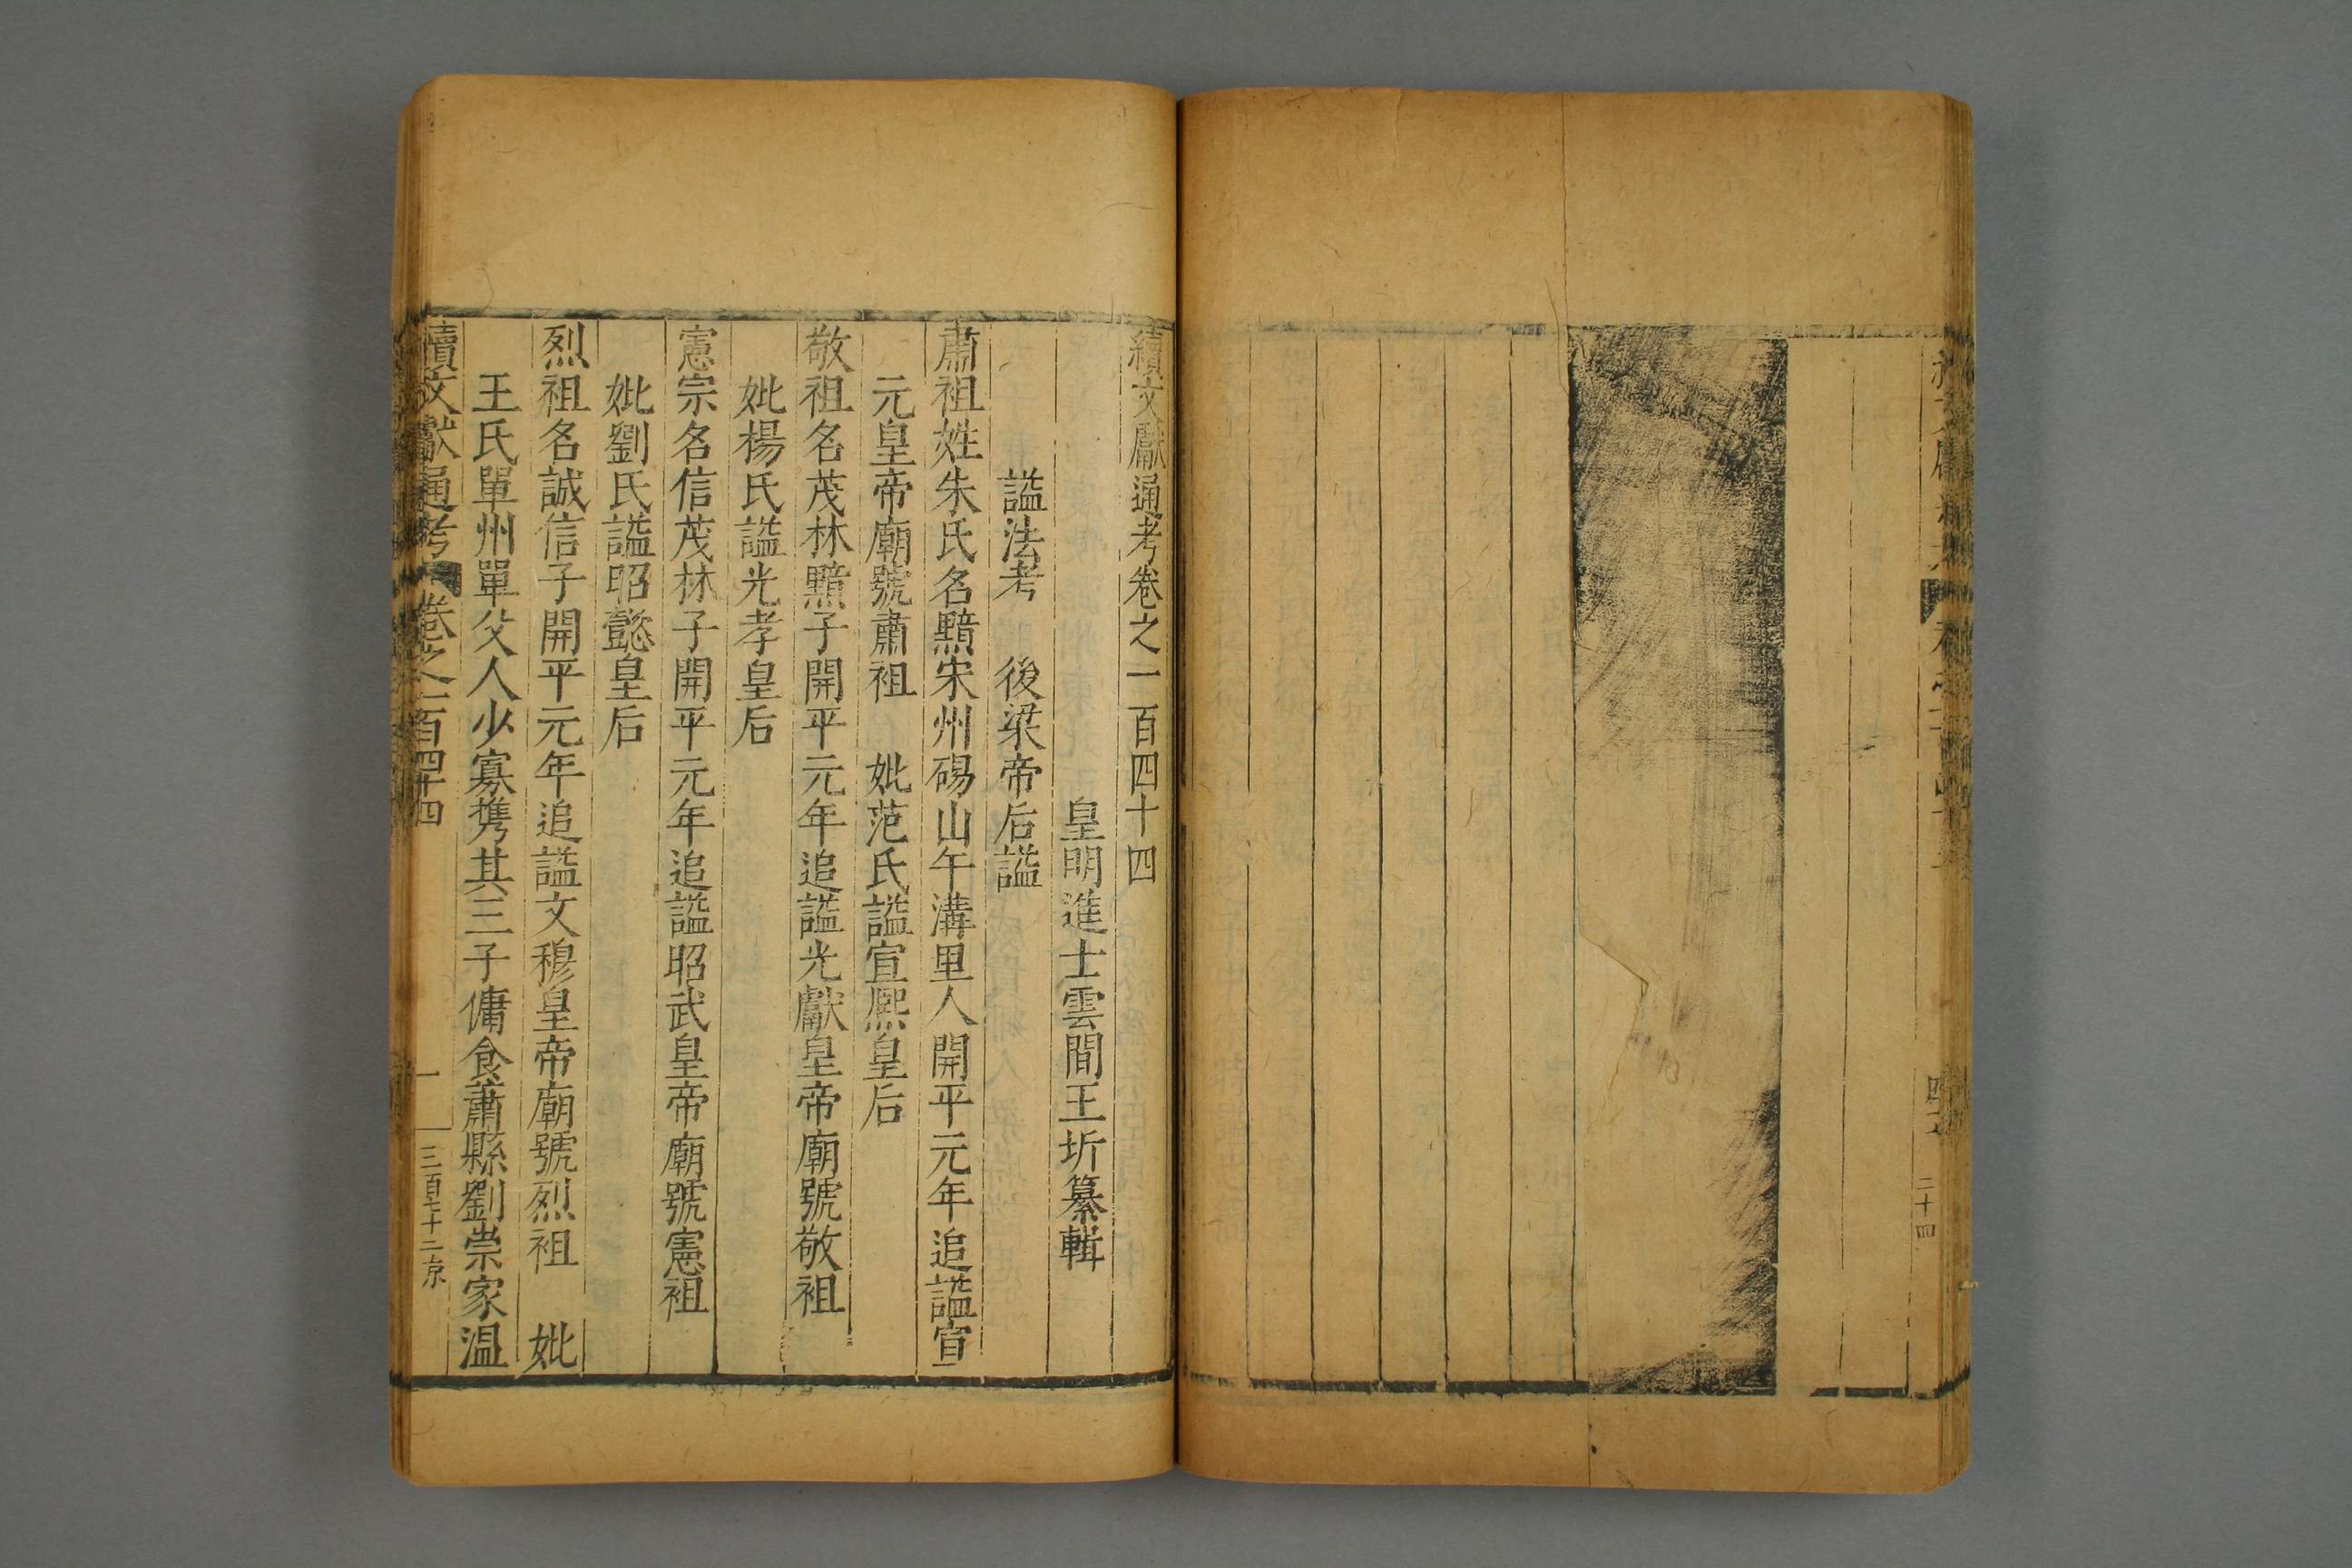 二十四
續文獻通考卷之一百四十四
皇明進士雲間王圻纂輯
謚法考　後梁帝后謚
肅祖姓朱氏名黯宋州碭山午溝里人開平元年追謚宣
元皇帝廟號肅祖　妣范氏謚宣熙皇后
敬祖名茂林黯子開平元年追謚光獻皇帝廟號敬祖
妣楊氏謚光孝皇后
憲宗名信茂林子開平元年追謚昭武皇帝廟號憲祖
妣劉氏謚昭懿皇后
烈祖名誠信子開平元年追謚文穆皇帝廟號烈祖　妣
王氏單州單父人少寡攜其三子傭食蕭縣劉崇家溫
續文獻通考　卷之一百四十四　一　三百七十二　京